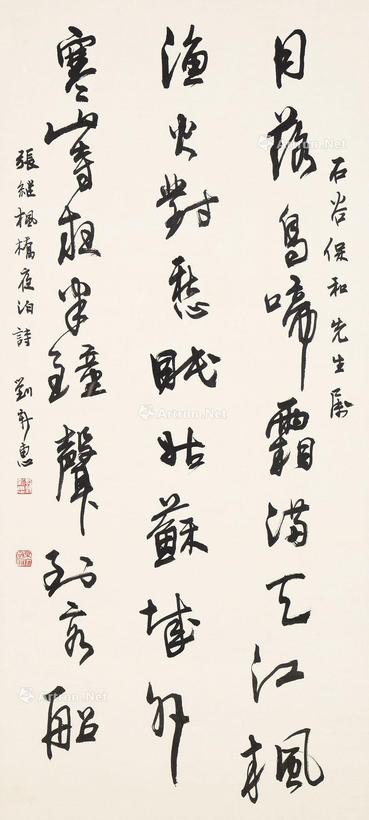 石谷保和先生屬
月落烏啼霜滿天江楓
漁火對愁眠姑蘇城外
寒山寺夜半鐘聲到客船
張繼楓橋夜泊詩 劉惠
Artron.Net
Artron.Net
Artron.Net
Artron.Net
Artron.Net